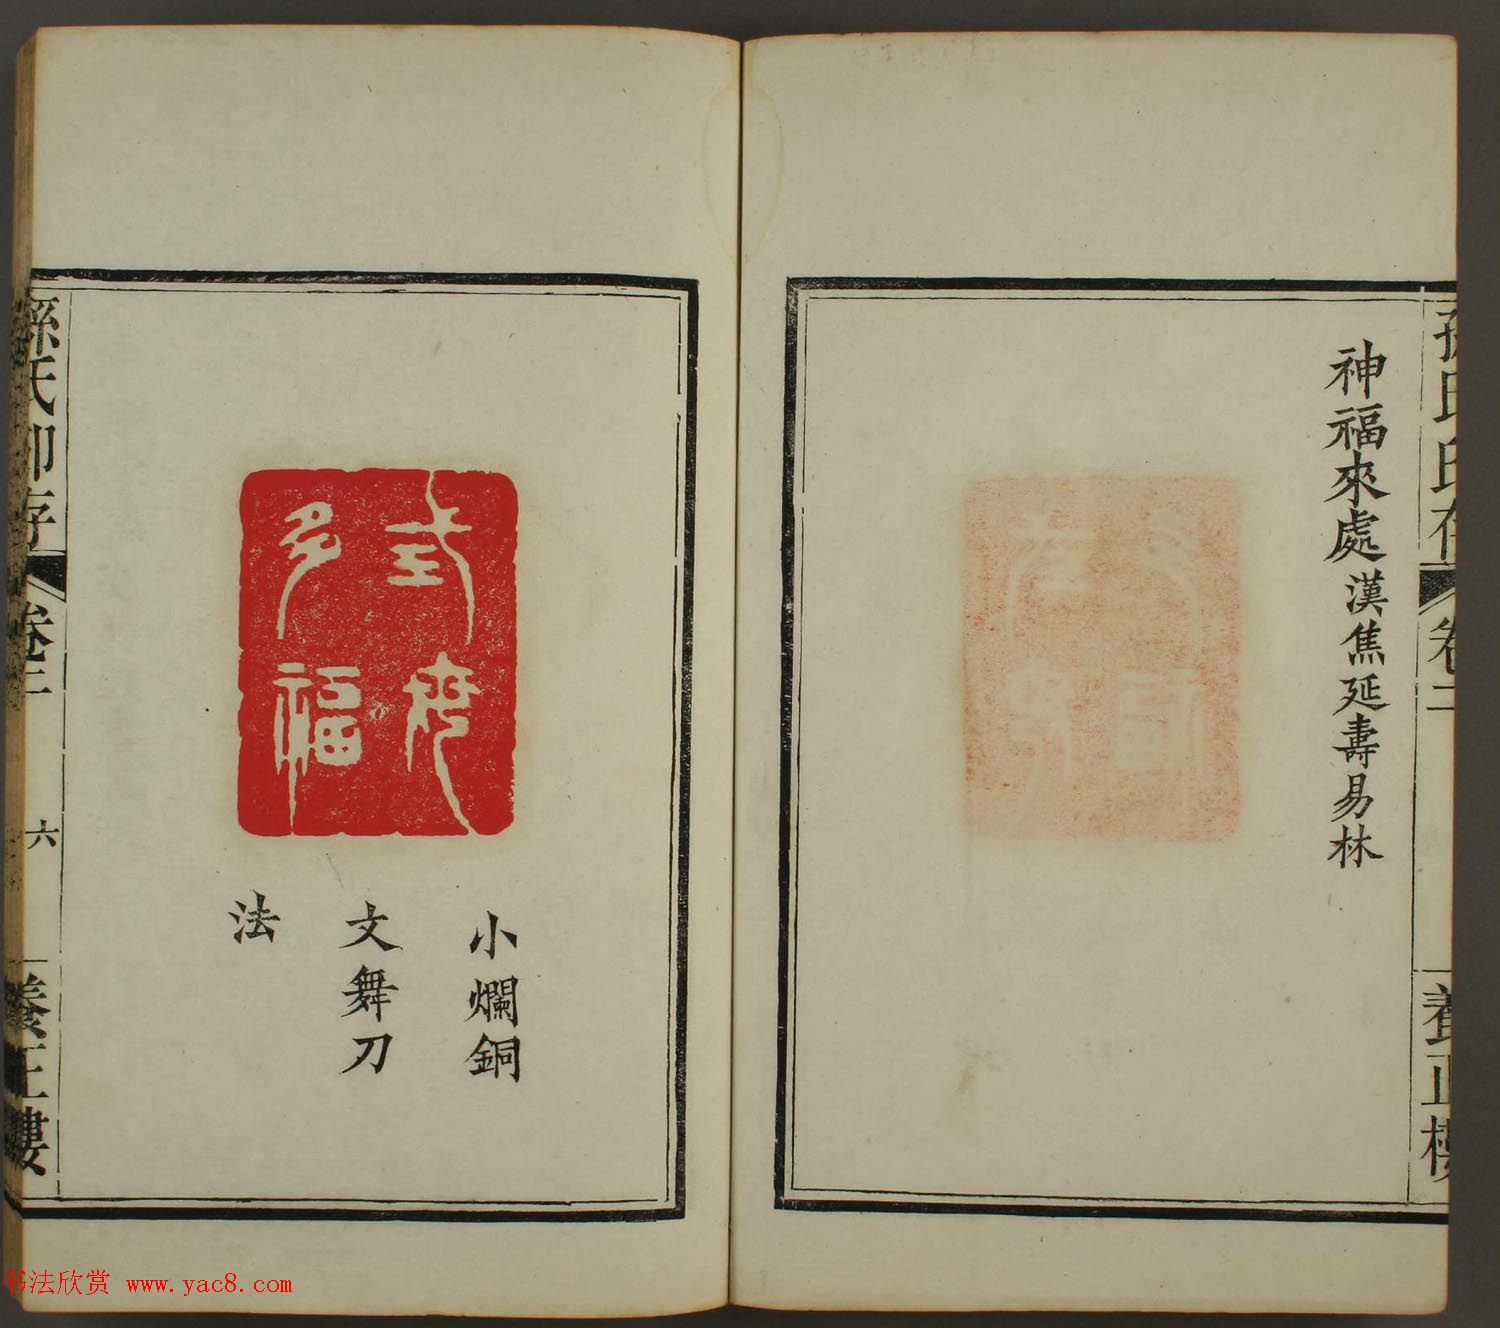 孫氏印存
卷二
養正樓
神福來處漢焦延壽易林
多福
小爛銅
文舞刀
法
孫氏印存
卷二
六
養正樓
书法欣赏 www.yac8.com